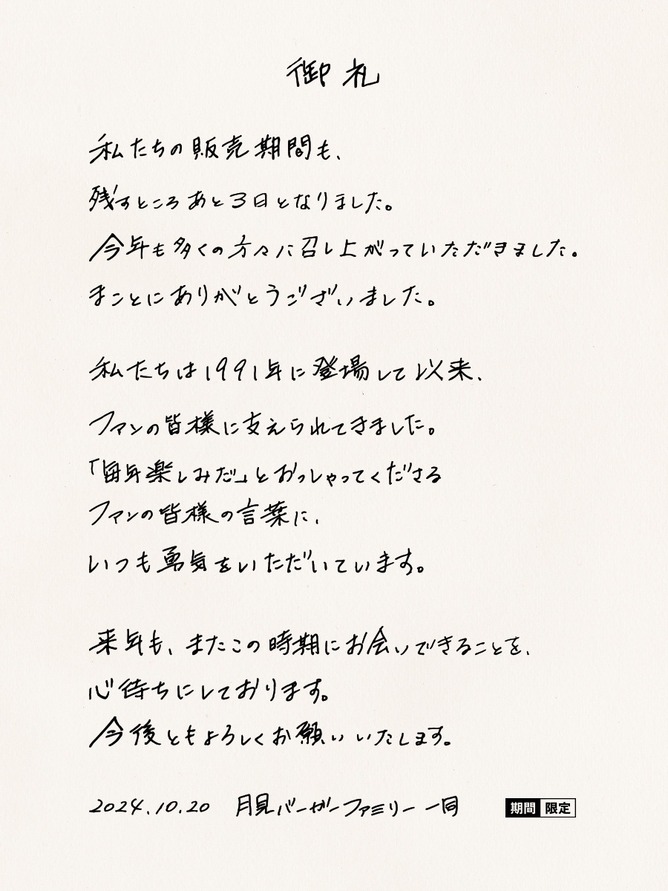 御礼
私たちの販売期間も、
残すところあと3日となりました。
今年も多くの方々に召し上がっていただきました。
まことにありがとうございました。
私たちは1991年に登場して以来、
ファンの皆様に支えられてきました。
「毎年楽しみだ」とおっしゃってくださる
ファンの皆様の言葉に、
いつも勇気をいただいています。
来年も、またこの時期にお会いできることを、
心待ちにしております。
今後ともよろしくお願いいたします。
2024.10.20 月見バーガーファミリー 一同 期間限定